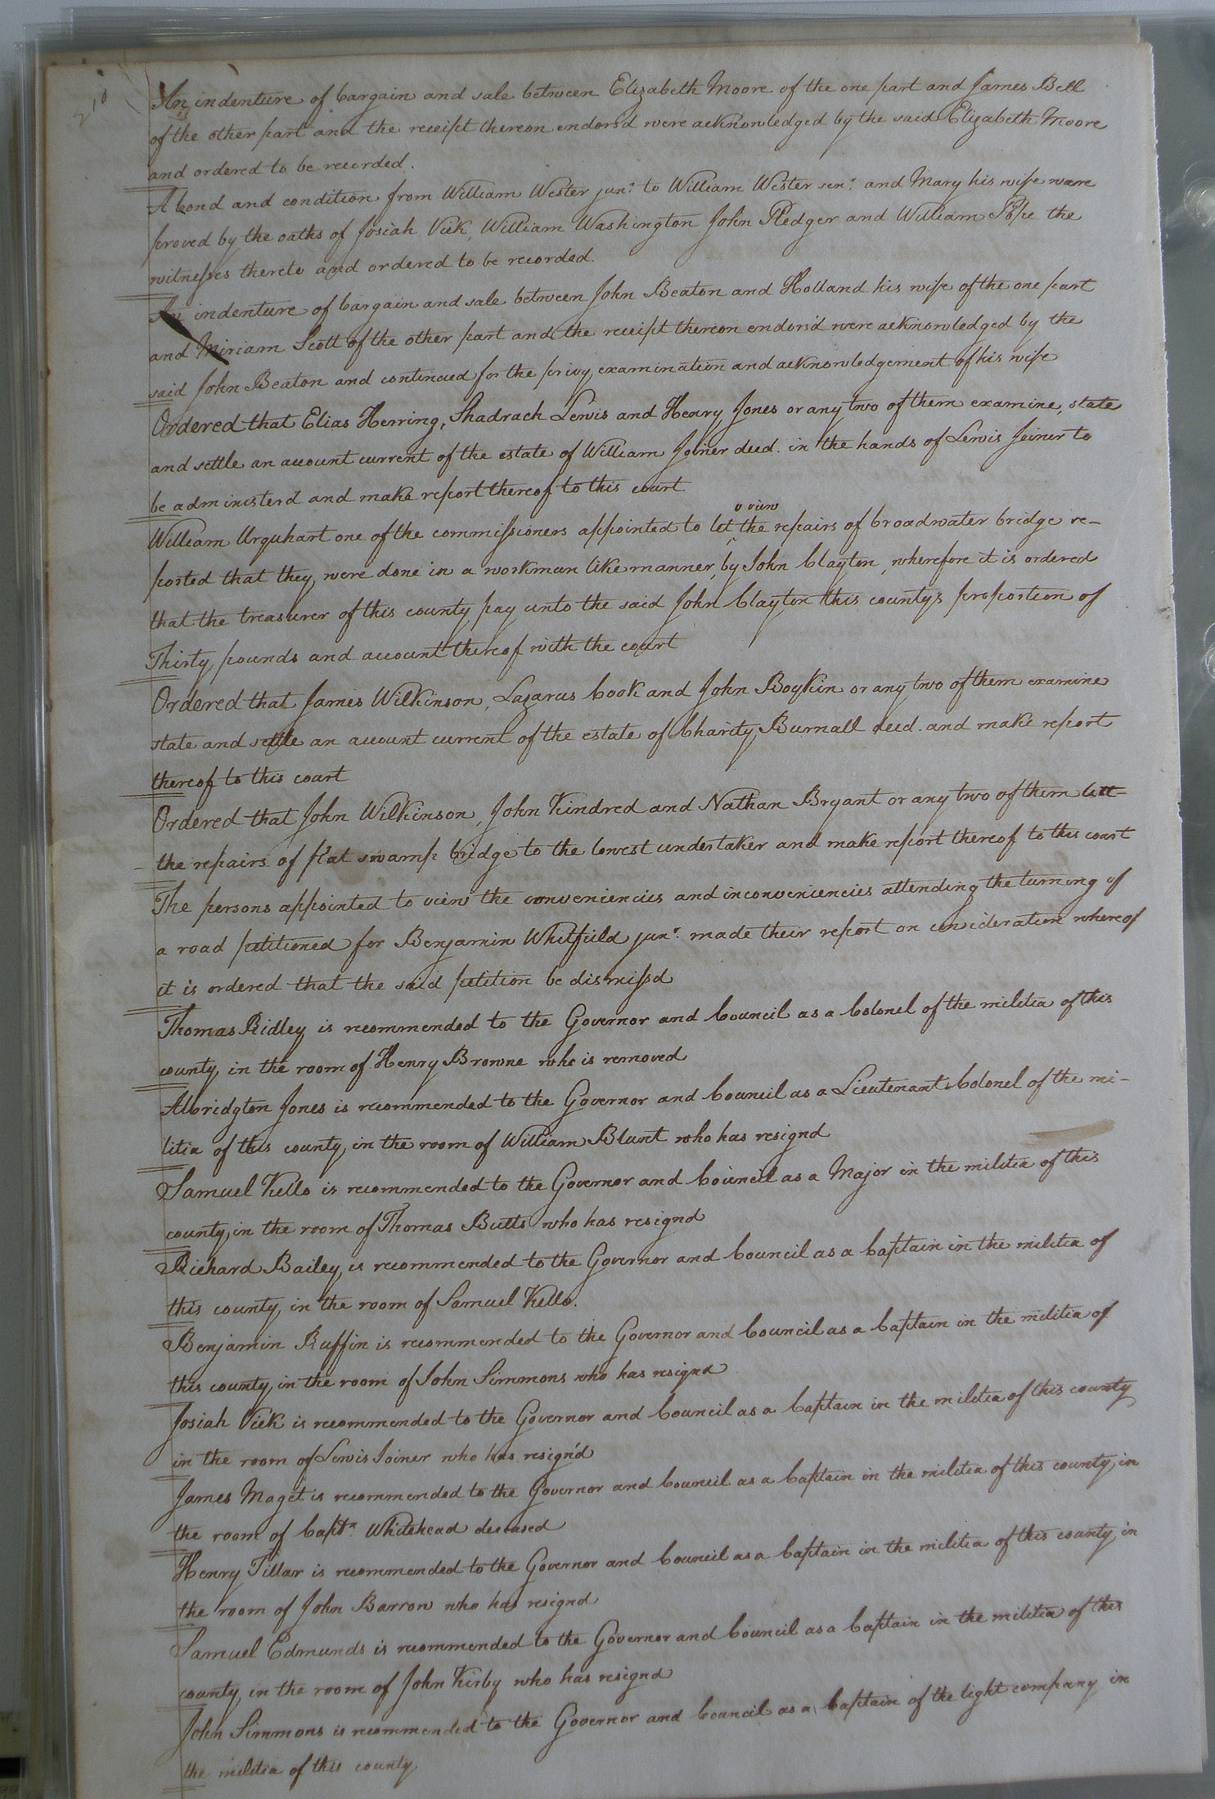 210
An indenture of bargain and sale between Elizabeth Moore of the one part and James Bell
of the other part and the receipt thereon endorsd were acknowledged by the said Elizabeth Moore
and ordered to be recorded.
A bond and condition from William Wester junr. to William Wester senr. and Mary his wife were
proved by the oaths of Josiah Vick, William Washington John Pledger and William Pope the
witnesses thereto and ordered to be recorded.
An indenture of bargain and sale between John Beaton and Holland his wife of the one part
and Miriam Scott of the other part and the receipt thereon endors'd were acknowledged by the
said John Beaton and continued for the privy examination and acknowledgement of his wife
Ordered that Elias Herring, Shadrach Lewis and Henry Jones or any two of them examine, state
and settle an account current of the estate of William Joiner decd. in the hands of Lewis Joiner to
be administerd and make report thereof to this court
& view
William Urquhart one of the commissioners appointed to let the repairs of broadwater bridge re-
ported that they were done in a workman like manner, by John Clayton, wherefore it is ordered
that the treasurer of this county pay unto the said John Clayton this countys proportion of
Thirty pounds and account thereof with the court
Ordered that James Wilkinson, Lazarus Cook and John Boykin or any two of them examine
state and settle an account current of the estate of Charity Burnall decd. and make report
thereof to this court
Ordered that John Wilkinson, John Kindred and Nathan Bryant or any two of them let
the repairs of flat swamp bridge to the lowest undertaker and make report thereof to this court
The persons appointed to view the conveniencies and inconveniencies attending the turning of
a road petitioned for Benjamin Whitfield junr. made their report on consideration whereof
it is ordered that the said petition be dismissd
Thomas Ridley is recommended to the Governor and Council as a Colonel of the militia of this
county in the room of Henry Browne who is removed
Albridgton Jones is recommended to the Governor and Council as a Lieutenant Colonel of the mi-
litia of this county in the room of William Blunt who has resignd
Samuel Kello is recommended to the Governor and Council as a Major in the militia of this
county in the room of Thomas Butts who has resignd
Richard Bailey is recommended to the Governor and Council as a Captain in the militia of
this county in the room of Samuel Kello.
Benjamin Ruffin is recommended to the Governor and Council as a Captain in the militia of
this county in the room of John Simmons who has resignd
Josiah Vick is recommended to the Governor and Council as a Captain in the militia of this county
in the room of Lewis Joiner who has resign'd
James Maget is recommended to the Governor and Council as a Captain in the militia of this county in
the room of Captn. Whitehead deceased
Henry Tillar is recommended to the Governor and Council as a Captain in the militia of this county in
the room of John Barrow who has resignd
Samuel Edmunds is recommended to the Governor and Council as a Captain in the militia of this
county in the room of John Kirby who has resignd
John Simmons is recommended to the Governor and Council as a Captain of the light company in
the militia of this county